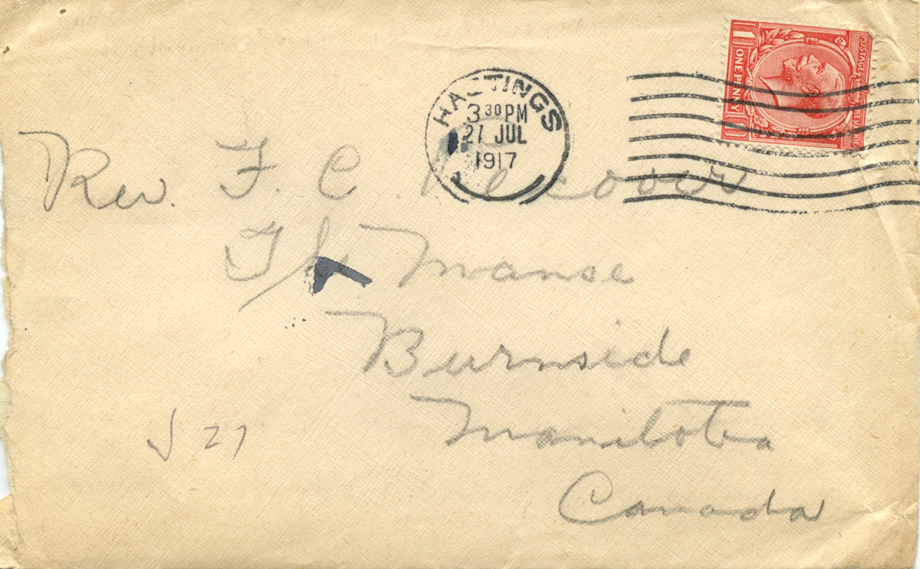 POSTAGE REVENUE
ONE PENNY
HASTINGS
3 30 PM
27 JUL
1917
Rev. F. C.
The Manse
Burnside
Manitoba
Canada
J 27